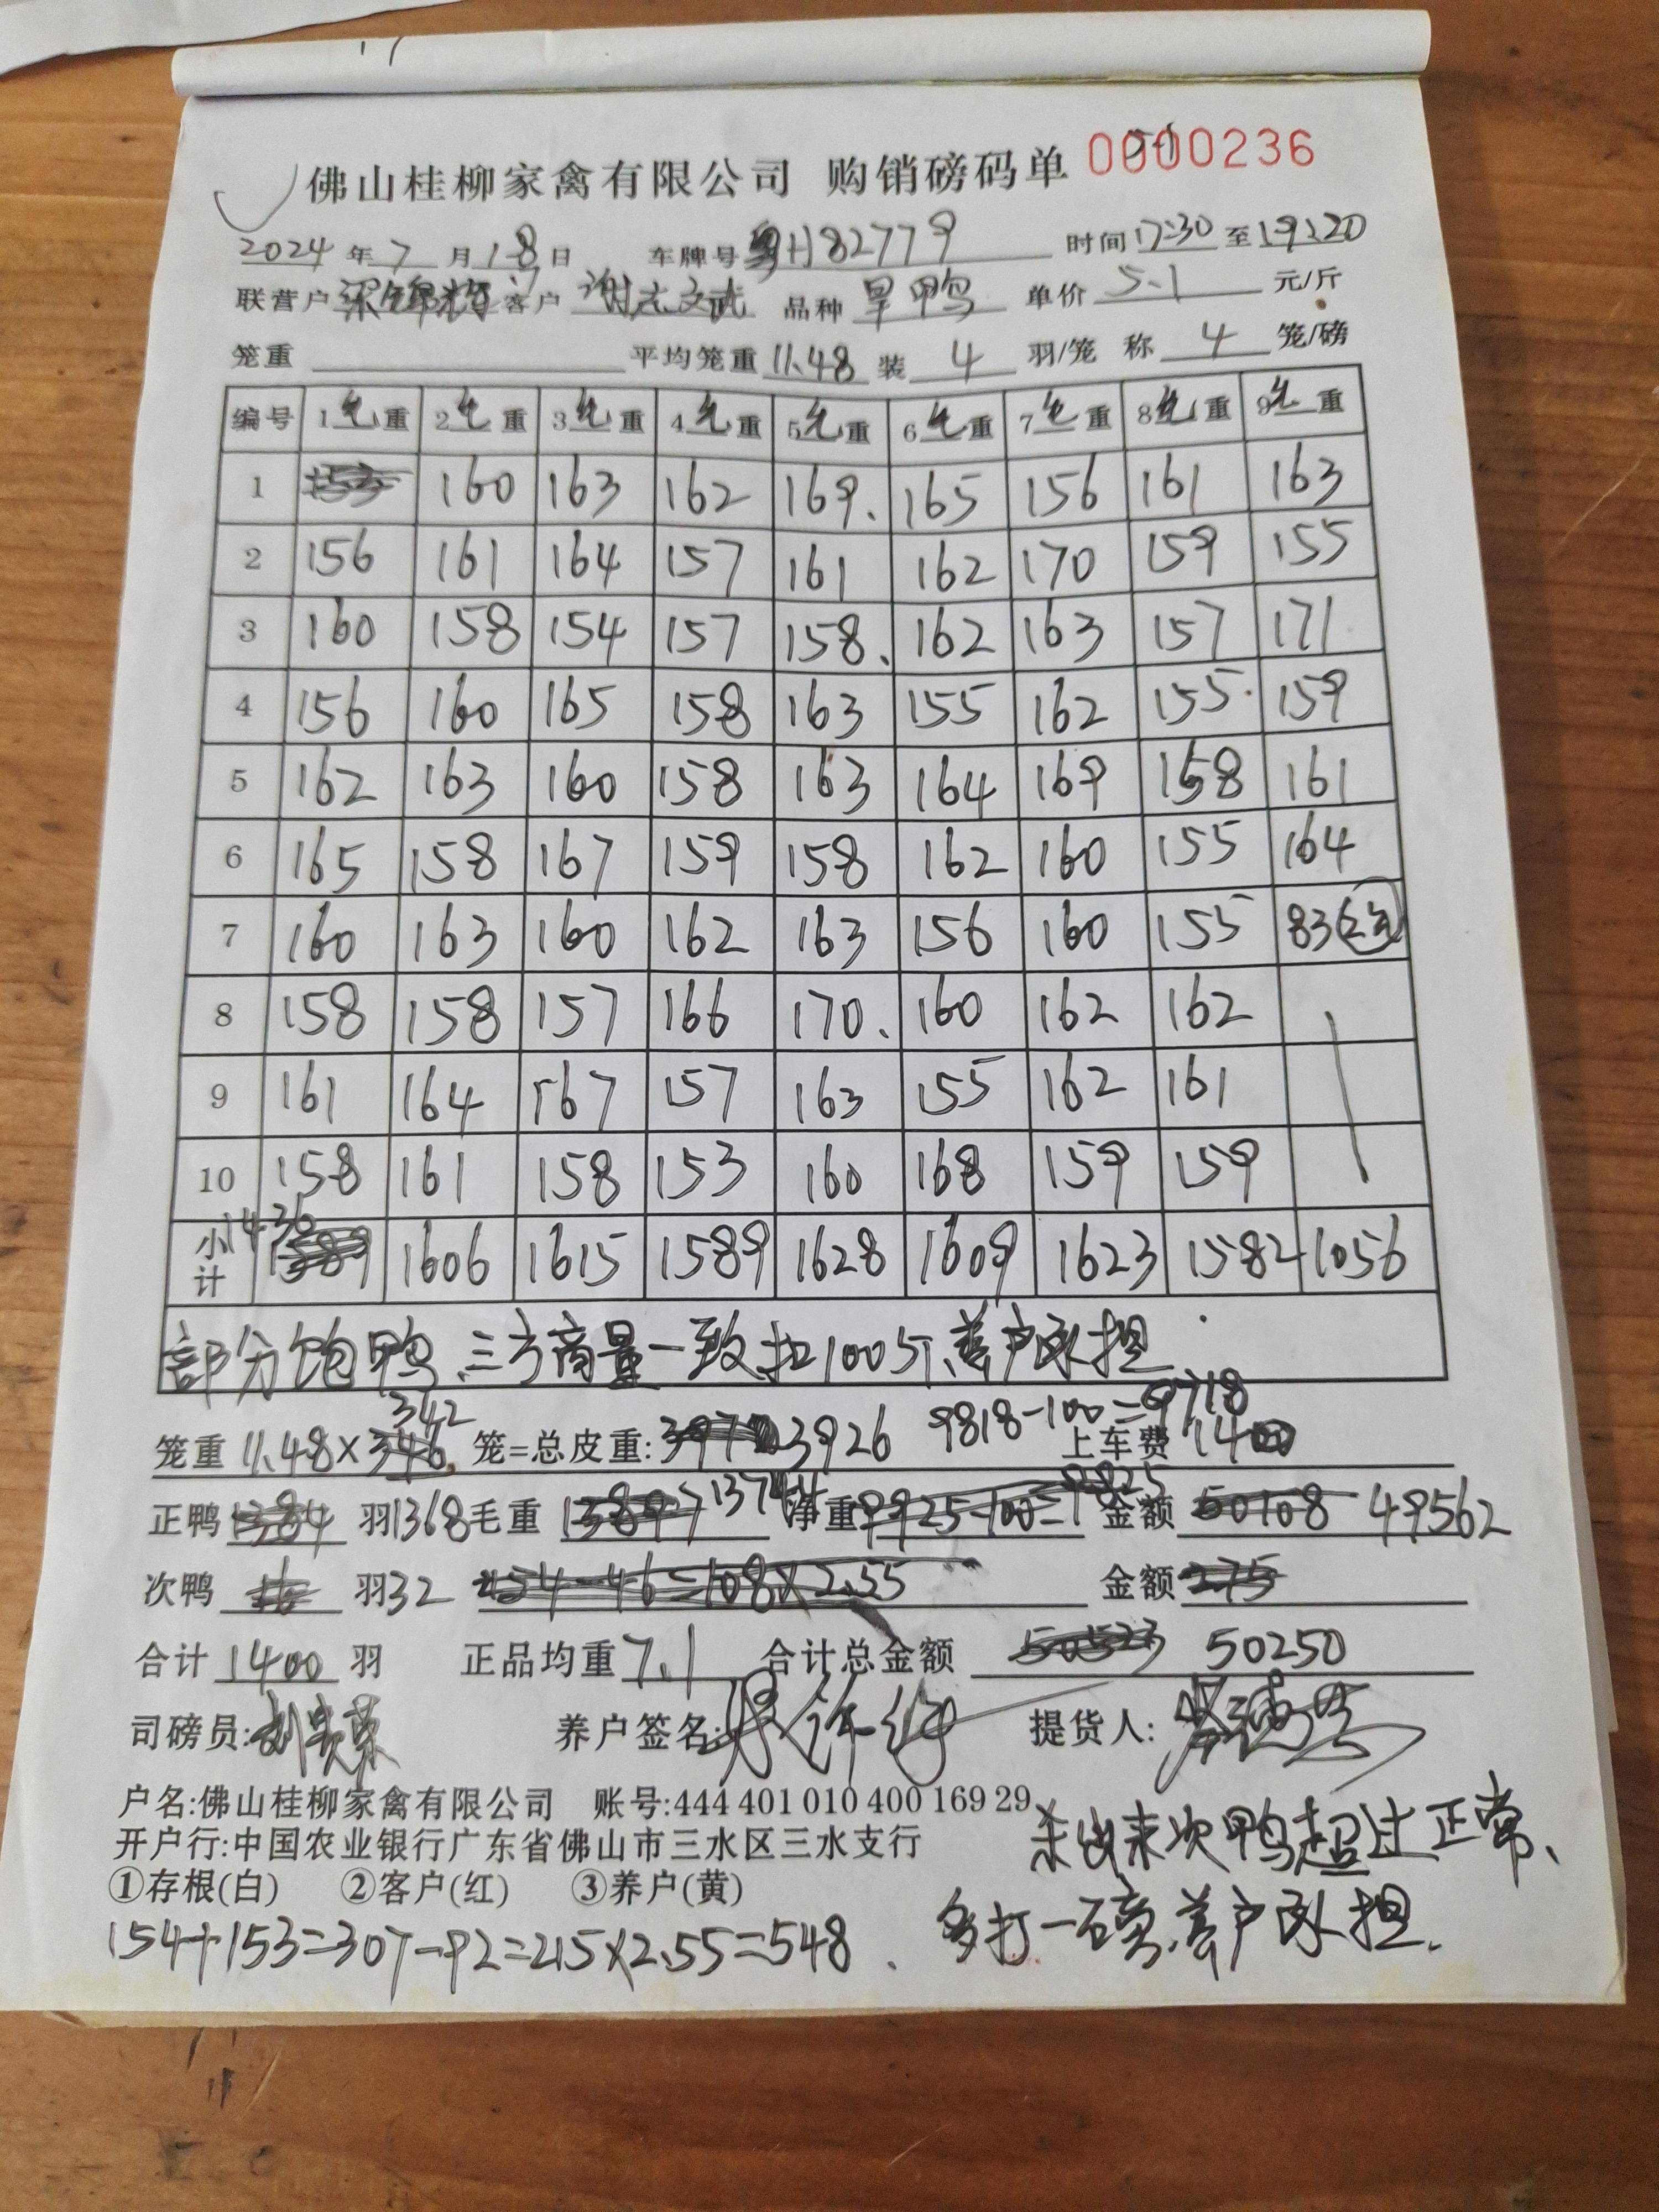 佛山桂柳家禽有限公司 购销磅码单 0000236
2024年7月18日 车牌号粤H82779 时间17:30至19:20
联营户梁锦 客户谢志文 品种旱鸭 单价5.1元/斤
笼重 平均笼重11.48 装4羽/笼 称4笼/磅
编号 1毛重 2毛重 3毛重 4毛重 5毛重 6毛重 7毛重 8毛重 9毛重
1 153 160 163 162 169. 165 156 161 163
2 156 161 164 157 161 162 170 159 155
3 160 158 154 157 158. 162 163 157 171
4 156 160 165 158 163 155 162 155. 159
5 162 163 160 158 163 164 169 158 161
6 165 158 167 159 158 162 160 155 164
7 160 163 160 162 163 156 160 155 83
8 158 158 157 166 170. 160 162 162
9 161 164 167 157 163 155 162 161
10 158 161 158 153 160 168 159 159
小计 1436 1589 1606 1615 1589 1628 1609 1623 1582 1056
部分饱鸭、三方商量一致扣100斤、养户承担
笼重11.48×346 342 笼=总皮重: 3926 9818-100=9718 上车费1400
正鸭1384羽1368 毛重13897 13744 净重9925-100=9825 金额50108 49562
次鸭16羽32 154-46=108×2.55 金额275
合计1400羽 正品均重7.1 合计总金额50523 50250
司磅员: 养户签名: 提货人:
户名:佛山桂柳家禽有限公司 账号:444 401 010 400 169 29
开户行:中国农业银行广东省佛山市三水区三水支行
杀出来次鸭超过正常、
①存根(白) ②客户(红) ③养户(黄)
多打一磅、养户承担.
154+153=307-92=215×2.55=548.